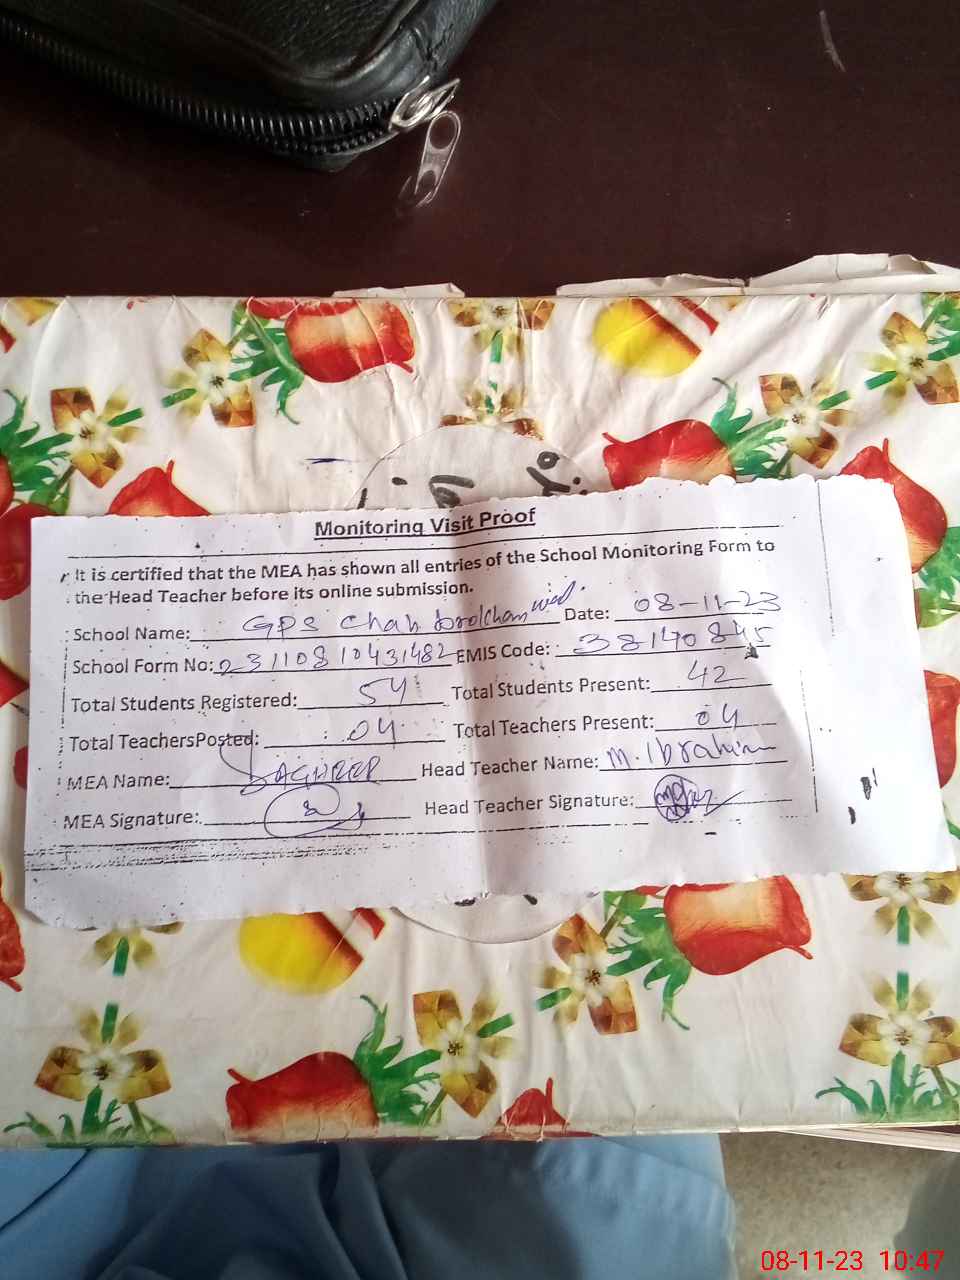 Monitoring Visit Proof
It is certified that the MEA has shown all entries of the School Monitoring Form to
the Head Teacher before its online submission.
School Name: GPS Chah Date: 08-11-23
School Form No: 23110810431482 EMIS Code: 38140845
Total Students Registered: 54 Total Students Present: 42
Total TeachersPosted: 04 Total Teachers Present: 04
MEA Name: Head Teacher Name: M. Ibrahim
MEA Signature: Head Teacher Signature:
08-11-23 10:47